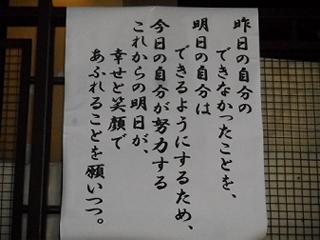 昨日の自分の
できなかったことを、
明日の自分は
できるようにするため、
今日の自分が努力する
これからの明日が、
幸せと笑顔で
あふれることを願いつつ。